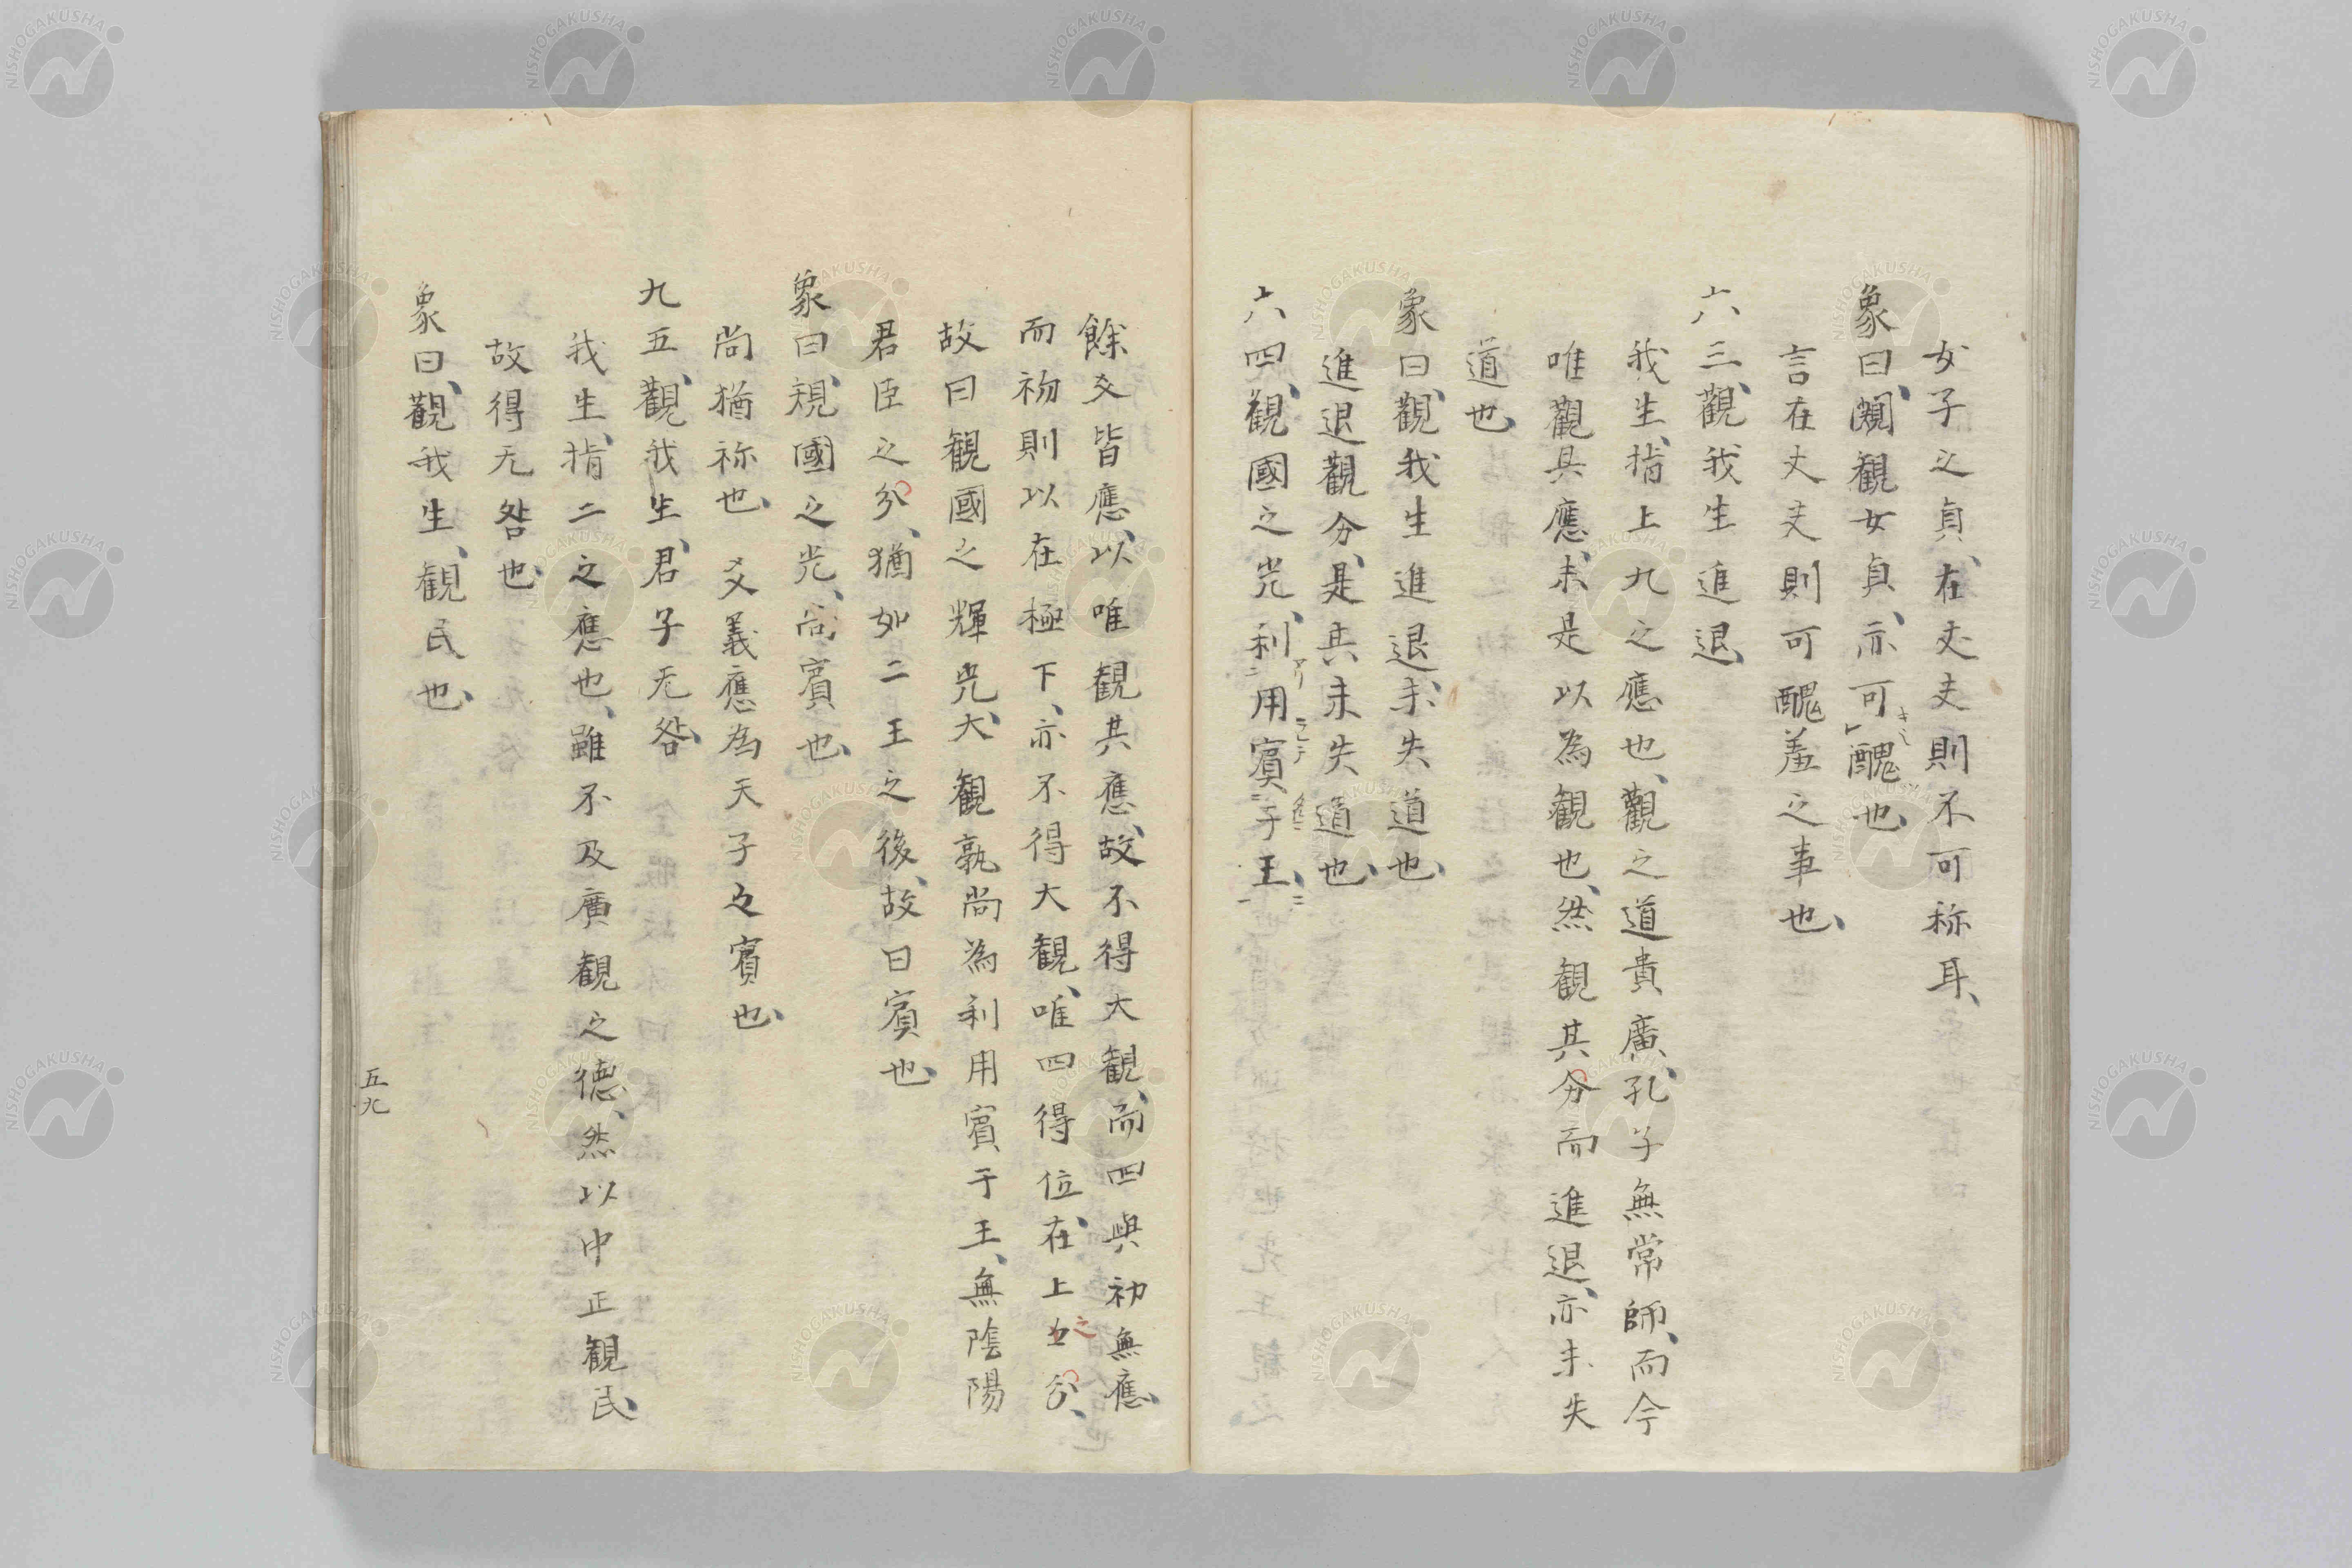 女子之貞、在丈夫則不可称耳、
象曰、闚觀女貞、亦可醜也、
言在丈夫則可醜羞之事也、
六三、觀我生進退、
我生、指上九之應也、觀之道貴廣、孔子無常師、而今
唯觀其應、未是以為觀也、然觀其分而進退、亦未失
道也、
象曰、觀我生進退、未失道也、
進退觀分、是其未失道也、
六四、觀國之光、利用賓于王、
餘爻皆應、以唯觀其應、故不得大觀、而四與初無應、
而初則以在極下、亦不得大觀、唯四得位、在上之分、
故曰觀國之輝光、大觀孰尚為利用賓于王、無陰陽
君臣之分、猶如二王之後、故曰賓也、
象曰、観國之光、尚賓也、
尚猶祢也、爻義應為天子之賓也、
九五、觀我生、君子无咎、
我生、指二之應也、雖不及廣觀之德、然以中正觀民、
故得无咎也、
象曰、觀我生、觀民也、
五九
NISHOGAKUSHA